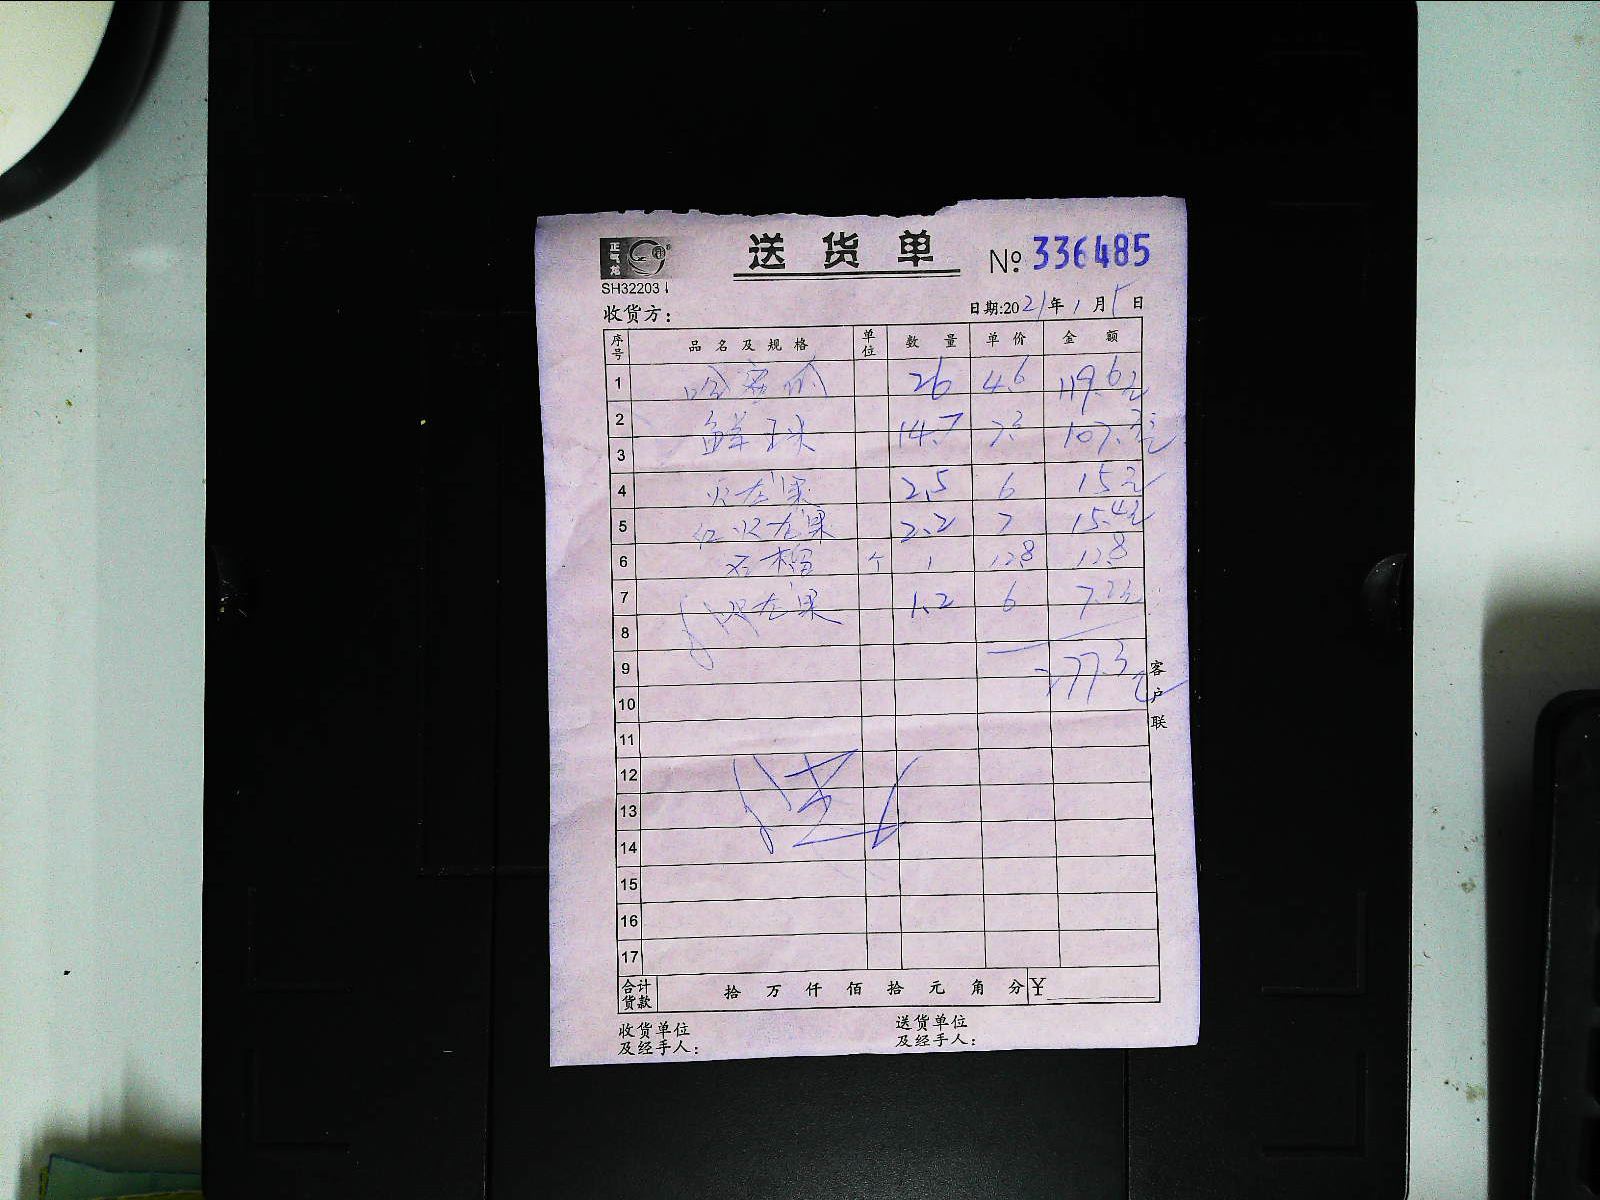 正气龙
送货单 № 336485
SH32203
收货方： 日期:2021年1月5日
序号 品名及规格 单位 数量 单价 金额
1 哈密瓜 26 4.6 119.6元
2 鲜玉米 14.7 7.3 107.3元
3
4 火龙果 2.5 6 15元
5 红火龙果 2.2 7 15.4元
6 石榴 个 1 12.8 12.8
7 火龙果 1.2 6 7.2元
8
9 277.3元
10
11
12
13
14
15
16
17
客户联
合计货款 拾 万 仟 佰 拾 元 角 分 ¥
收货单位 送货单位
及经手人： 及经手人：